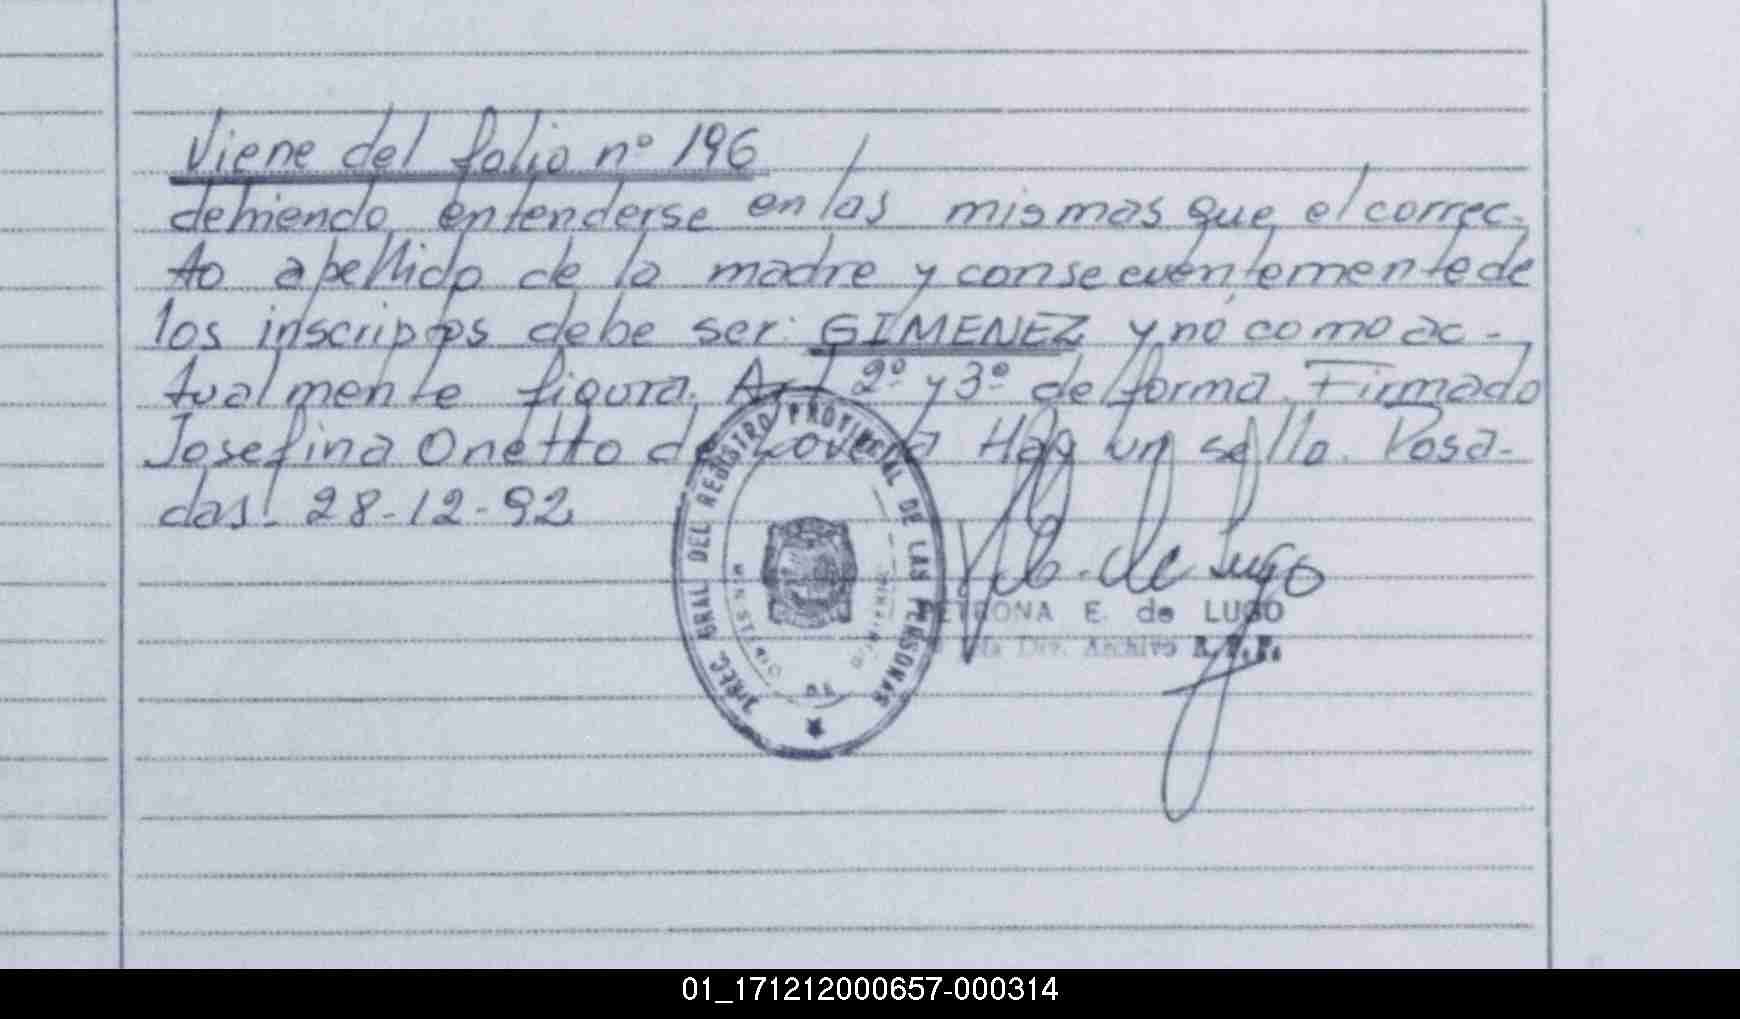 Viene del folio nº 196
debiendo entenderse en las mismas que el correc-
to apellido de la madre y consecuentemente de
los inscriptos debe ser: GIMENEZ y no como ac-
tualmente figura. Art 2º y 3º de forma. Firmado
Josefina Onetto de Lovera Hay un sello. Posa-
das! 28-12-92
DIREC. GRAL DEL REGISTRO PROVINCIAL DE LAS PERSONAS
MISIONES
de Lugo
PETRONA E. de LUGO
Div. Archivo R.P.P.
01_171212000657-000314